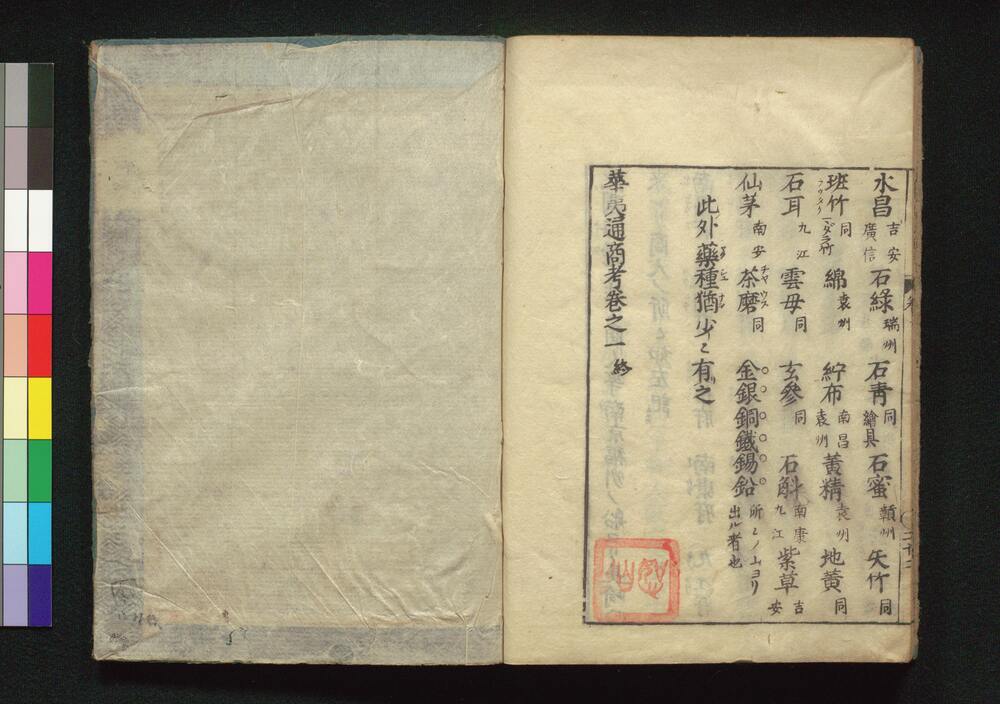 水昌 吉安 廣信 石緑 瑞州 石青 同 繪具 石蜜 贛州 矢竹 同
斑竹 同 綿 袁州 紵布 南昌 袁州 黄精 袁州 地黄 同
石耳 九江 雲母 同 玄參 同 石斛 南康 九江 紫草 吉安
仙茅 南安 茶磨 チヤウス 同 金銀銅鐵錫鉛 所〻ノ山ヨリ出ル者也
此外藥種猶少〻有之
華夷通商考卷之一 終